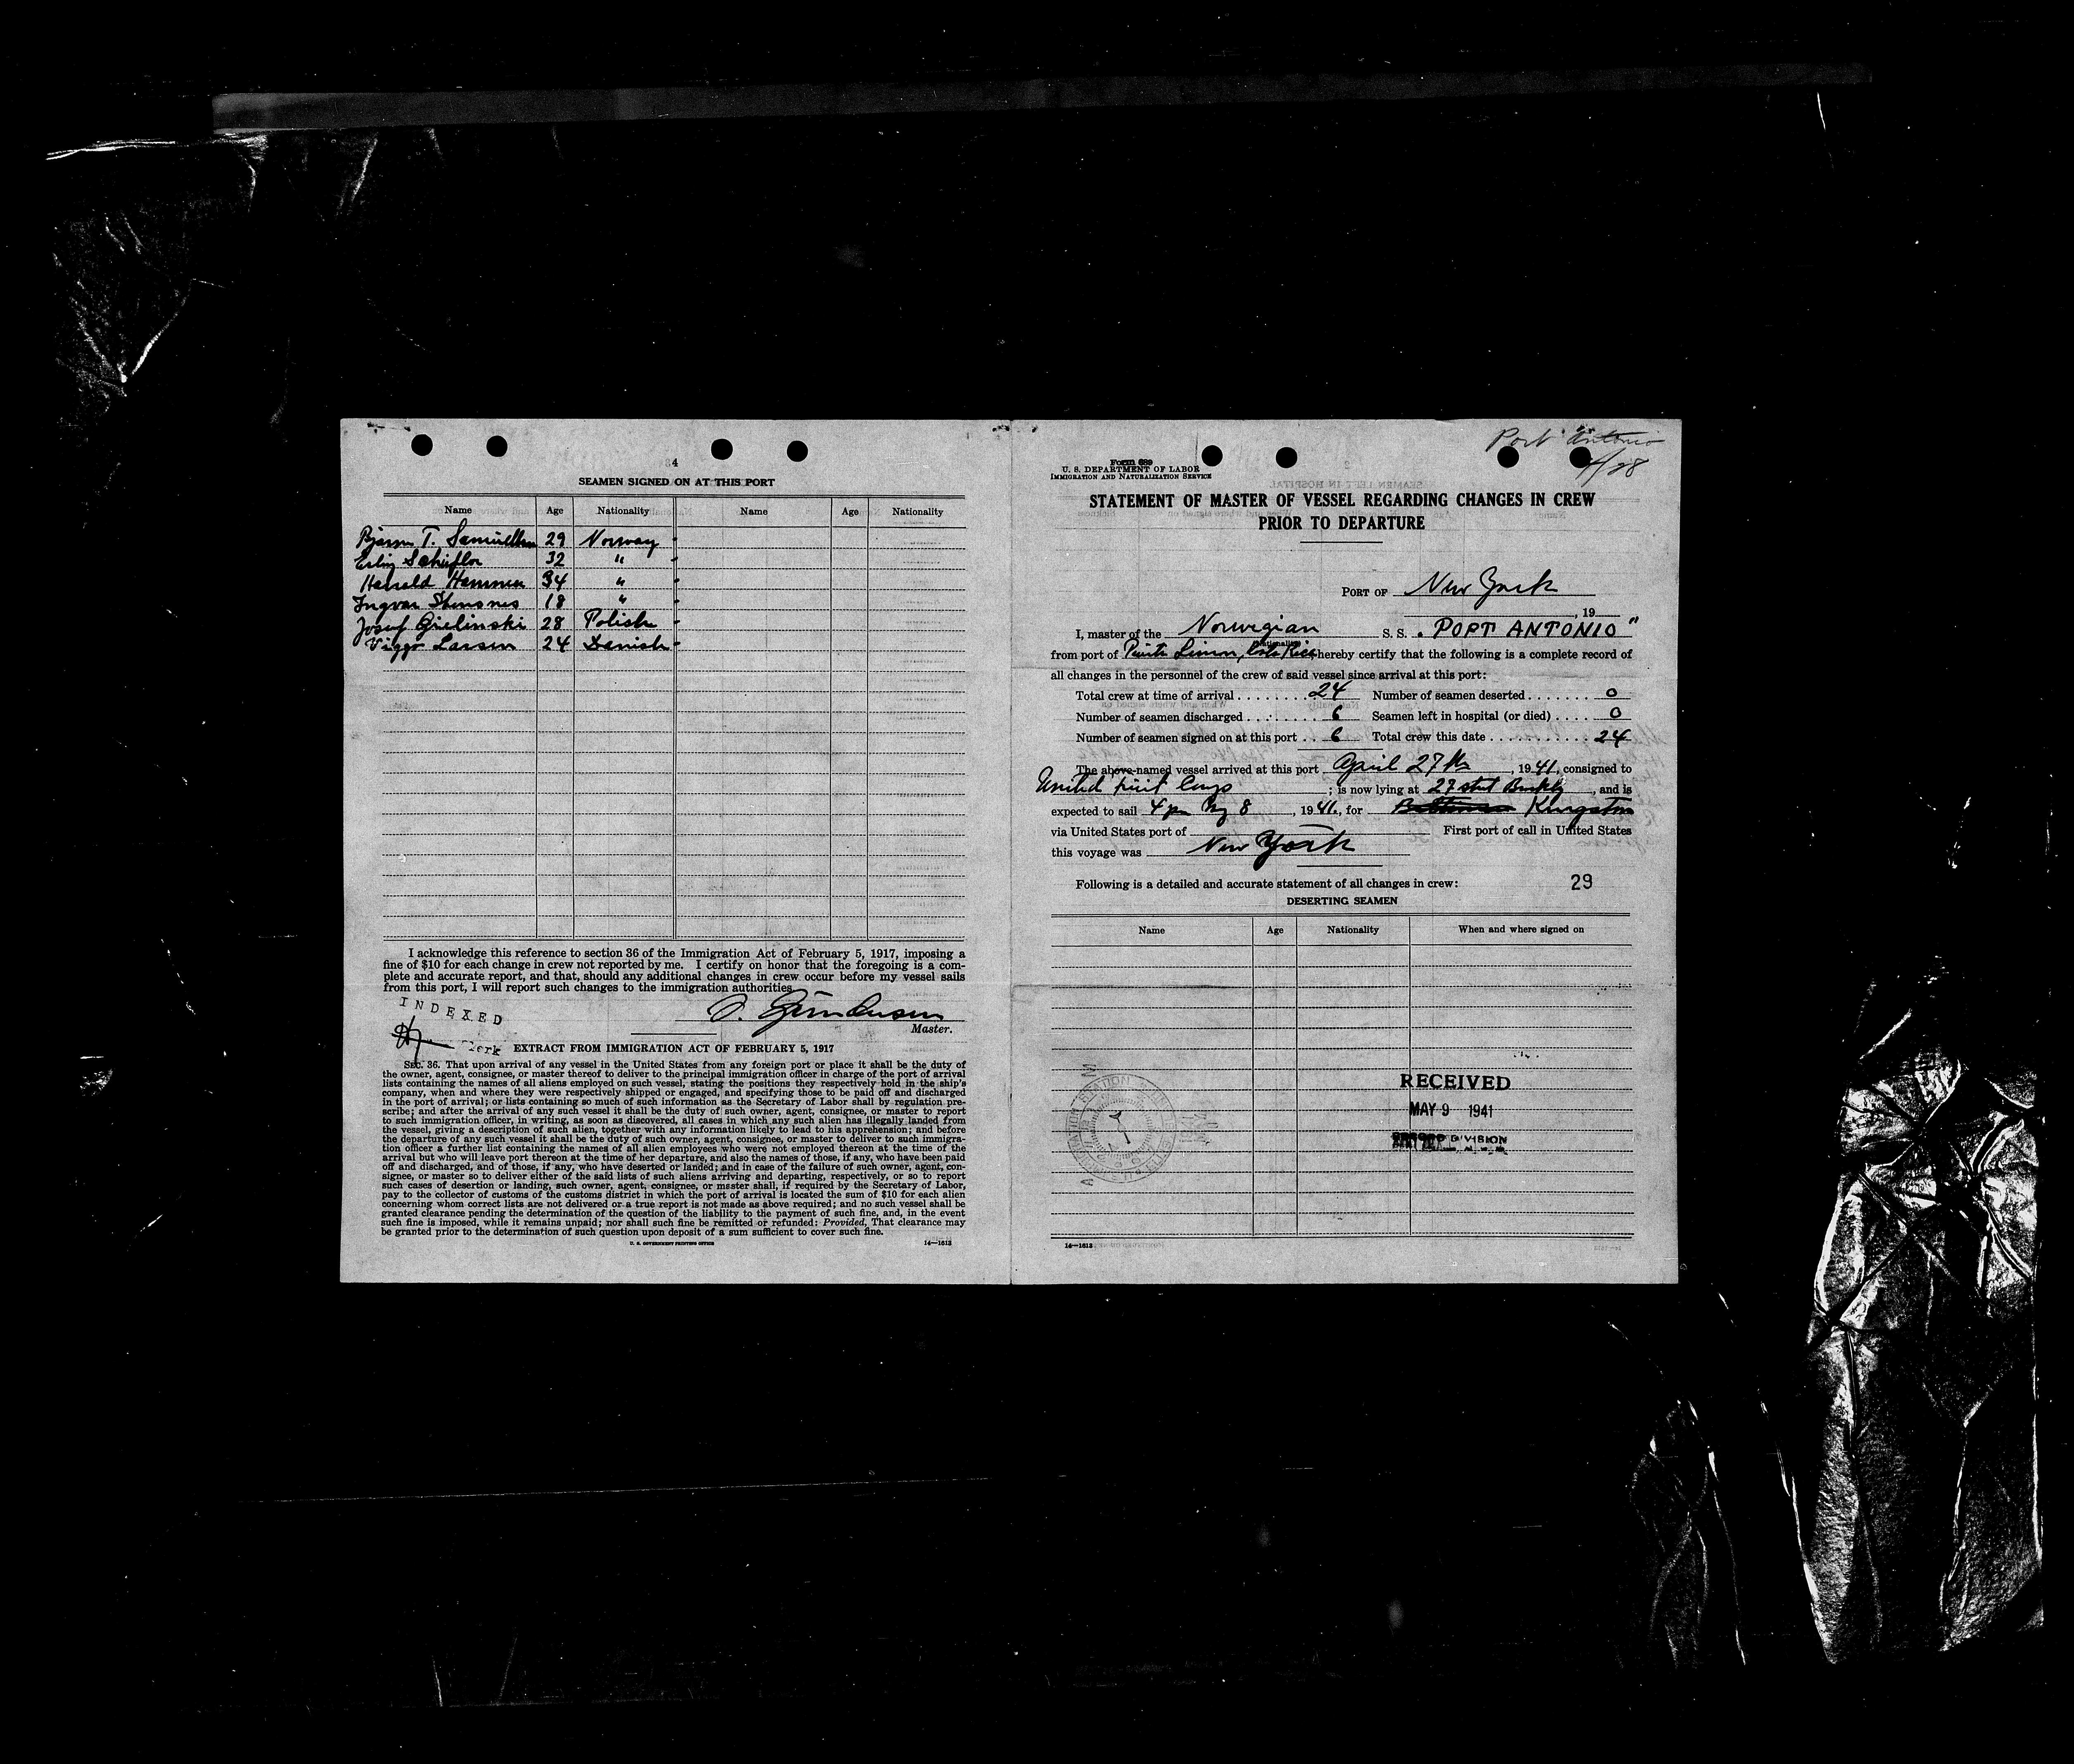 4
SEAMEN SIGNED ON AT THIS PORT
Name Age Nationality Name Age Nationality
Bjarne T. 29 Norway
32 "
Harald Hammer 34 "
Ingvar 18 "
Josef Gielinski 28 Polish
Viggo Larsen 24 Danish
I acknowledge this reference to section 36 of the Immigration Act of February 5, 1917, imposing a
fine of $10 for each change in crew not reported by me. I certify on honor that the foregoing is a com-
plete and accurate report, and that, should any additional changes in crew occur before my vessel sails
from this port, I will report such changes to the immigration authorities.
Master.
INDEXED
EXTRACT FROM IMMIGRATION ACT OF FEBRUARY 5, 1917
SEC. 36. That upon arrival of any vessel in the United States from any foreign port or place it shall be the duty of
the owner, agent, consignee, or master thereof to deliver to the principal immigration officer in charge of the port of arrival
lists containing the names of all aliens employed on such vessel, stating the positions they respectively hold in the ship's
company, when and where they were respectively shipped or engaged, and specifying those to be paid off and discharged
in the port of arrival; or lists containing so much of such information as the Secretary of Labor shall by regulation pre-
scribe; and after the arrival of any such vessel it shall be the duty of such owner, agent, consignee, or master to report
to such immigration officer, in writing, as soon as discovered, all cases in which any such alien has illegally landed from
the vessel, giving a description of such alien, together with any information likely to lead to his apprehension; and before
the departure of any such vessel it shall be the duty of such owner, agent, consignee, or master to deliver to such immigra-
tion officer a further list containing the names of all alien employees who were not employed thereon at the time of the
arrival but who will leave port thereon at the time of her departure, and also the names of those, if any, who have been paid
off and discharged, and of those, if any, who have deserted or landed; and in case of the failure of such owner, agent, con-
signee, or master so to deliver either of the said lists of such aliens arriving and departing, respectively, or so to report
such cases of desertion or landing, such owner, agent, consignee, or master shall, if required by the Secretary of Labor,
pay to the collector of customs of the customs district in which the port of arrival is located the sum of $10 for each alien
concerning whom correct lists are not delivered or a true report is not made as above required; and no such vessel shall be
granted clearance pending the determination of the question of the liability to the payment of such fine, and, in the event
such fine is imposed, while it remains unpaid; nor shall such fine be remitted or refunded: Provided, That clearance may
be granted prior to the determination of such question upon deposit of a sum sufficient to cover such fine.
U. S. GOVERNMENT PRINTING OFFICE 14—1613
Port Antonio
4/28
Form 689
U. S. DEPARTMENT OF LABOR
IMMIGRATION AND NATURALIZATION SERVICE
STATEMENT OF MASTER OF VESSEL REGARDING CHANGES IN CREW
PRIOR TO DEPARTURE
PORT OF New York
, 19
I, master of the Norwegian S. S. "PORT ANTONIO"
(Nationality)
from port of Limon, Costa Rica hereby certify that the following is a complete record of
all changes in the personnel of the crew of said vessel since arrival at this port:
Total crew at time of arrival 24 Number of seamen deserted 0
Number of seamen discharged 6 Seamen left in hospital (or died) 0
Number of seamen signed on at this port 6 Total crew this date 24
The above-named vessel arrived at this port April 27th, 1941, consigned to
United Fruit ; is now lying at 27 , and is
expected to sail 4 pm 8, 1941, for Kingston
via United States port of — First port of call in United States
this voyage was New York
Following is a detailed and accurate statement of all changes in crew: 29
DESERTING SEAMEN
Name Age Nationality When and where signed on
RECEIVED
MAY 9 1941
RECORD DIVISION
14—1613